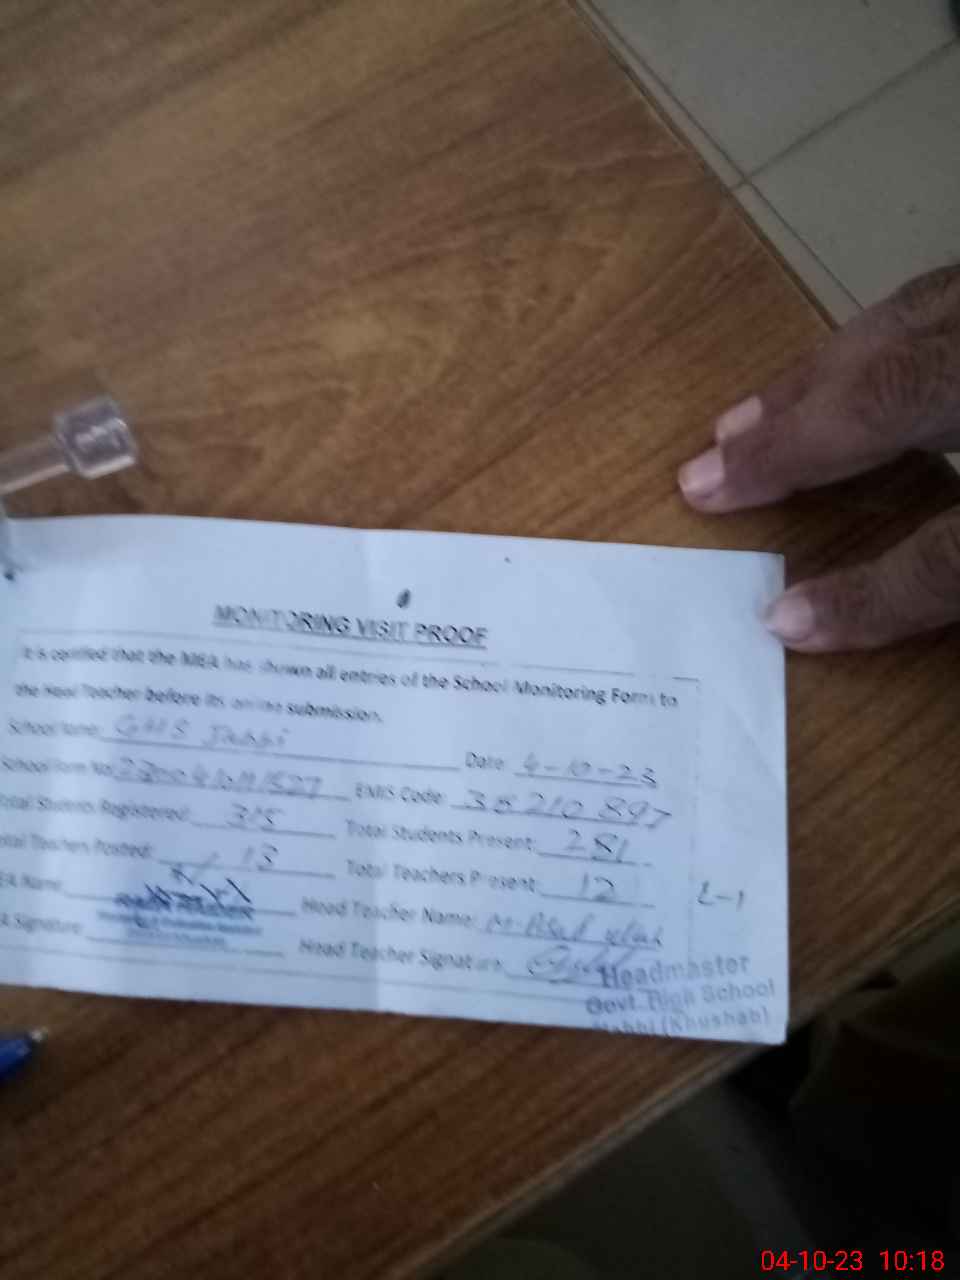 MONITORING VISIT PROOF
It is certified that the MEA has shown all entries of the School Monitoring Form to
the Head Teacher before its online submission.
School Name: GHS Jabbi
Date: 4-10-23
School Form No.
EMIS Code: 38210897
Total Students Registered: 315
Total Students Present: 281
Total Teachers Posted: 13
Total Teachers Present: 12
L-1
EA Name
Head Teacher Name: M.
EA Signature
Head Teacher Signature:
Headmaster
Govt. High School
Jabbi (Khushab)
04-10-23 10:18